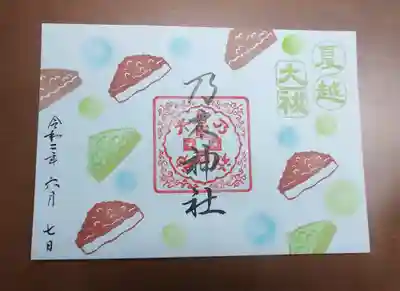 夏越
大祓
乃木神社
令和二年 六月 七日